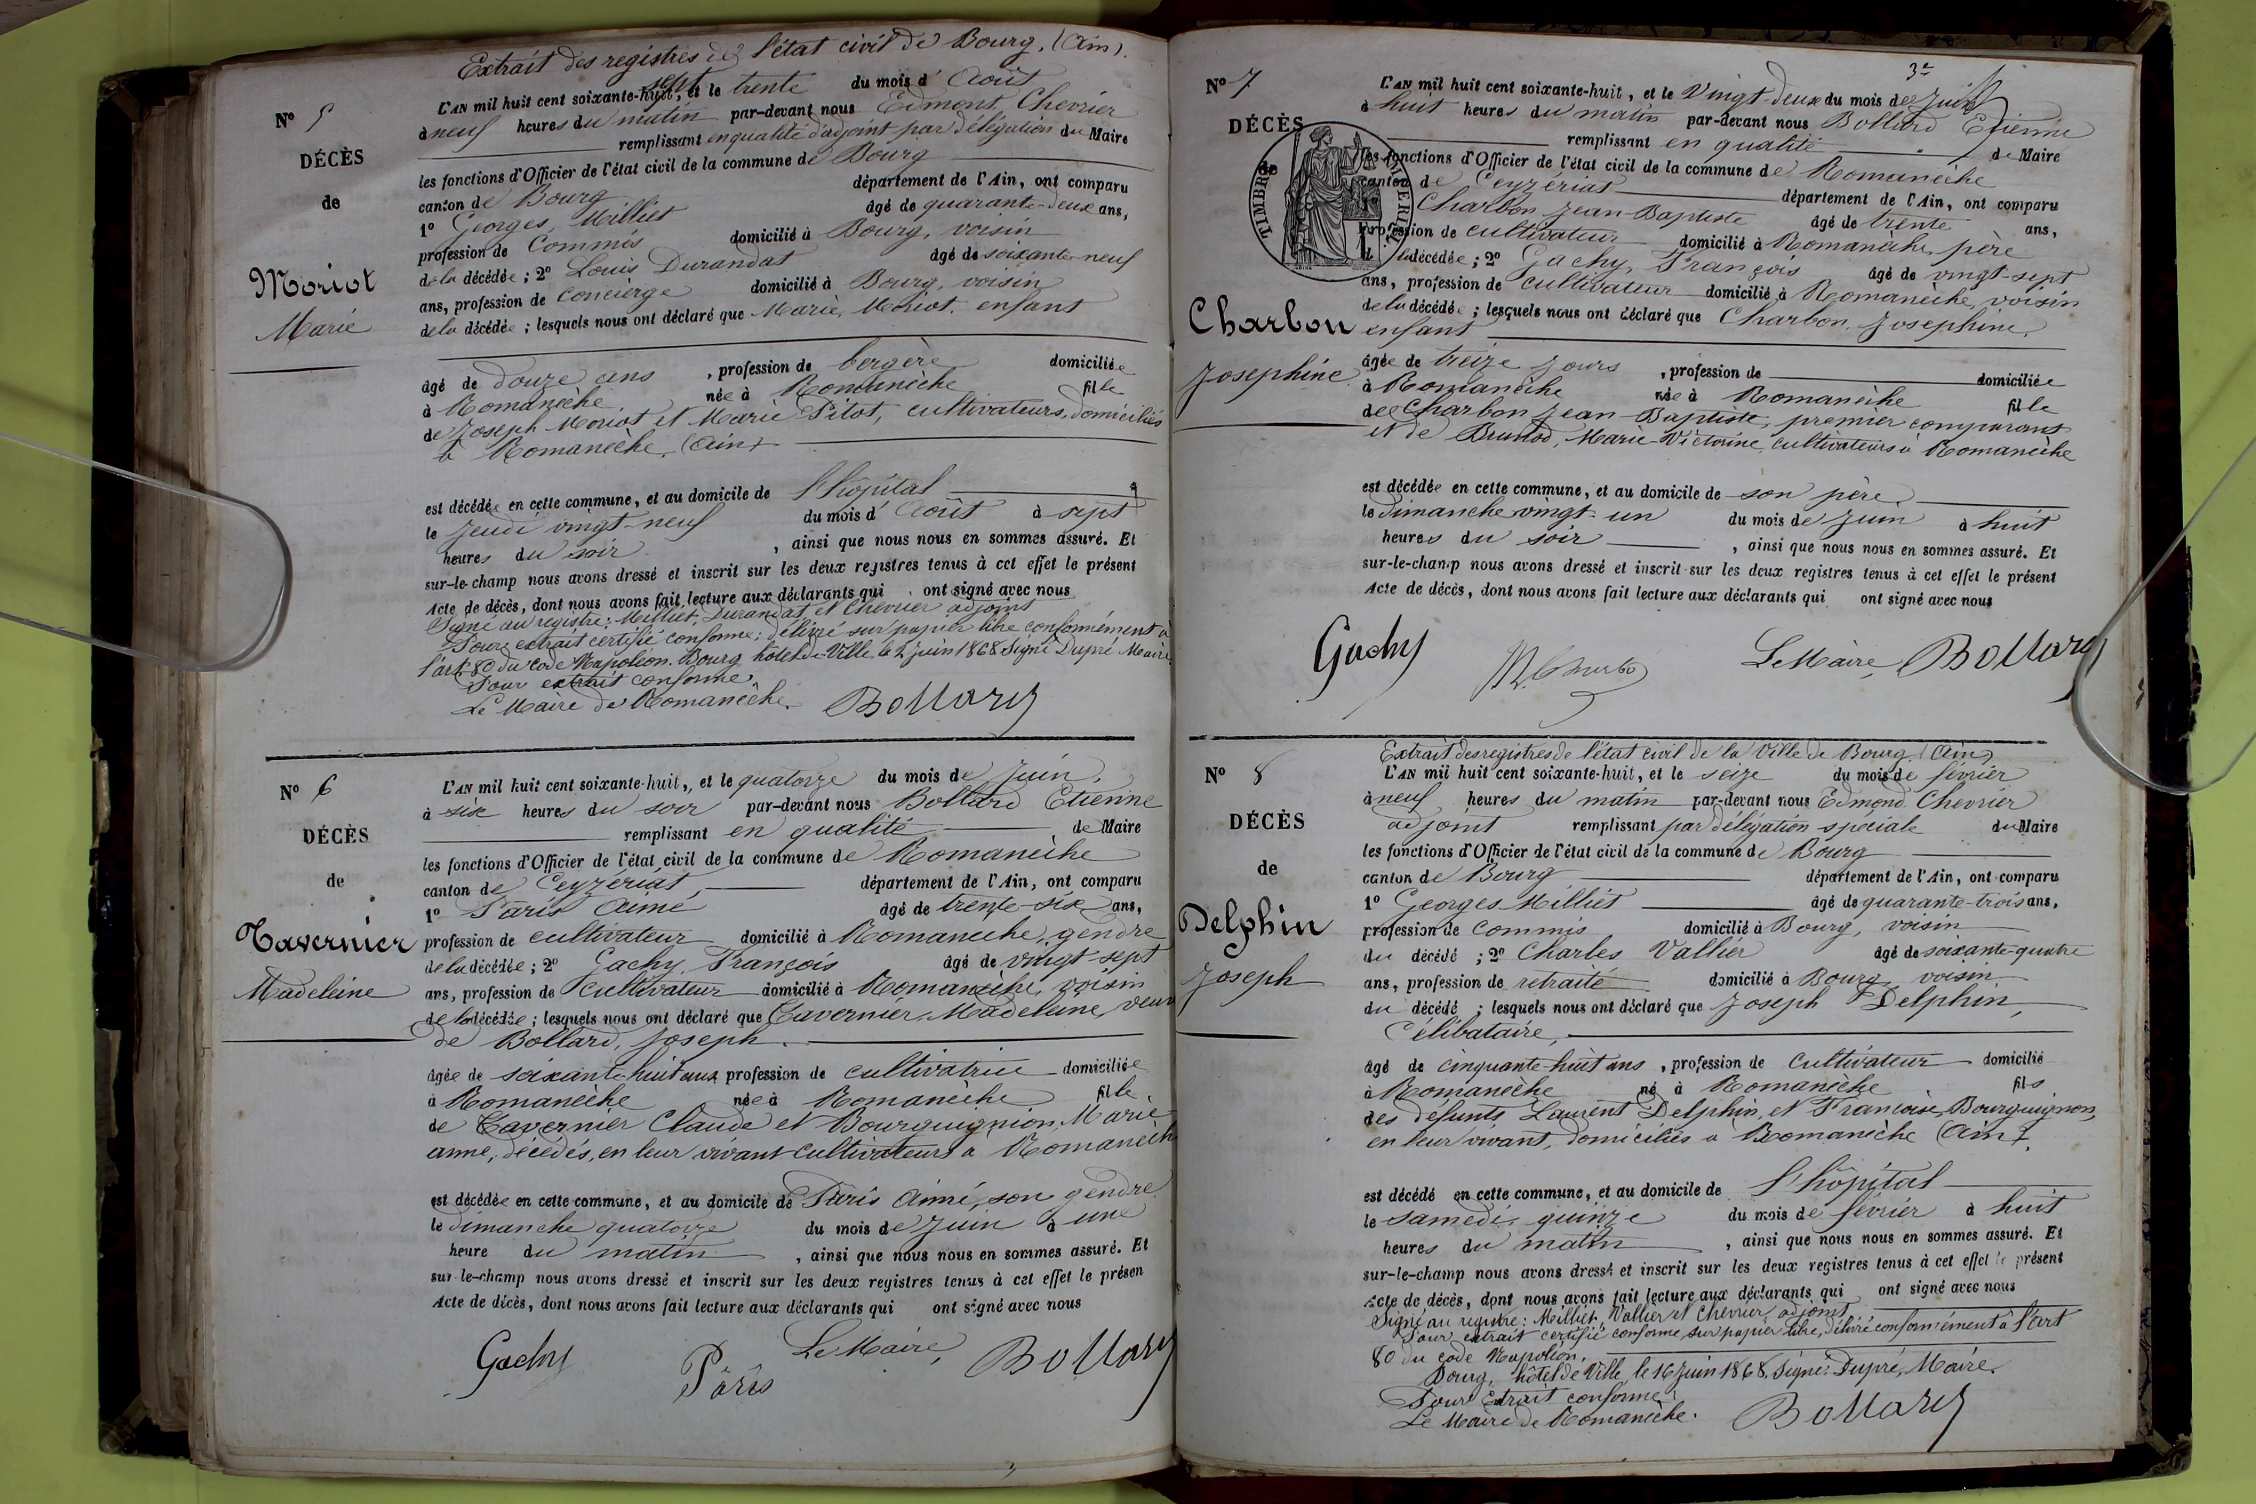 Extrait des registres de l'état civil de Bourg, (Ain).
N° 5
L'AN mil huit cent soixante-huit, et le trente du mois d'Août
sept
à neuf heures du matin par-devant nous Edmont, Chevrier
remplissant en qualité d'adjoint par délégation du Maire
DÉCÈS
les fonctions d'Officier de l'état civil de la commune de Bourg
canton de Bourg département de l'Ain, ont comparu
de
1° Georges, Milliet âgé de quarante-deux ans,
profession de Commis domicilié à Bourg, voisin
de la décédée ; 2° Louis Durandat âgé de soixante-neuf
Moriot
ans, profession de concierge domicilié à Bourg, voisin
Marie
de la décédée ; lesquels nous ont déclaré que Marie, Moriot. enfant
âgé de douze ans , profession de bergère domiciliée
à Romanèche née à Romanèche fille
de Joseph Moriot et Marie Pitot, cultivateurs, domiciliés
à Romanèche (Ain)
est décédée en cette commune, et au domicile de l'hôpital
le Jeudi vingt-neuf du mois d'Août à sept
heures du soir , ainsi que nous nous en sommes assuré. Et
sur-le-champ nous avons dressé et inscrit sur les deux registres tenus à cet effet le présent
Acte de décès, dont nous avons fait lecture aux déclarants qui ont signé avec nous
Signé au registre : Milliet, Durandat et Chevrier adjoint
Pour extrait certifié conforme; délivré sur papier libre conformément à
l'art 80 du code Napoléon. Bourg hôtel de Ville, le 2 juin 1868 Signé Dupré Maire
Pour extrait conforme
Le Maire de Romanèche. Bollard
N° 6
L'AN mil huit cent soixante-huit, et le quatorze du mois de Juin,
à six heures du soir par-devant nous Bollard Etienne
DÉCÈS
remplissant en qualité de Maire
les fonctions d'Officier de l'état civil de la commune de Romanèche
de
canton de Ceyzériat, département de l'Ain, ont comparu
1° Pâris Aimé âgé de trente-six ans,
Tavernier
profession de cultivateur domicilié à Romanèche, gendre
de la décédée ; 2° Gachy, François âgé de vingt-sept
Madeleine
ans, profession de cultivateur domicilié à Romanèche, voisin
de la décédée ; lesquels nous ont déclaré que Tavernier, Madeleine, veuve
de Bollard, Joseph.
âgée de soixante-huit ans profession de cultivatrice domiciliée
à Romanèche née à Romanèche fille
de Tavernier Claude et Bourguignion, Marie
anne, décédés, en leur vivant cultivateurs à Romanèche
est décédée en cette commune, et au domicile de Pâris Aimé, son gendre
le dimanche quatorze du mois de Juin à une
heure du matin , ainsi que nous nous en sommes assuré. Et
sur-le-champ nous avons dressé et inscrit sur les deux registres tenus à cet effet le présen
Acte de décès, dont nous avons fait lecture aux déclarants qui ont signé avec nous
Gachy Pâris Le Maire, Bollard
3e
N° 7
L'AN mil huit cent soixante-huit, et le vingt-deux du mois de Juin
à huit heures du matin par-devant nous Bollard Etienne
DÉCÈS
remplissant en qualité de Maire
les fonctions d'Officier de l'état cicil de la commune de Romanèche
de
canton de Ceyzériat département de l'Ain, ont comparu
TIMBRE IMPÉRIAL
Charbon Jean-Baptiste âgé de trente ans,
profession de cultivateur domicilié à Romanèche, père
de la décédée ; 2° Gachy, François âgé de vingt-sept
ans, profession de cultivateur domicilié à Romanèche, voisin
Charbon
de la décédée ; lesquels nous ont déclaré que Charbon, Josephine,
enfant
Josephine
âgée de treize jours , profession de domiciliée
à Romanèche née à Romanèche fille
de Charbon Jean-Baptiste, premier comparant
et de Brunod, Marie-Victorine, cultivateurs à Romanèche
est décédée en cette commune, et au domicile de son père
le Dimanche vingt-un du mois de Juin à huit
heures du soir , ainsi que nous nous en sommes assuré. Et
sur-le-champ nous avons dressé et inscrit sur les deux registres tenus à cet effet le présent
Acte de décès, dont nous avons fait lecture aux déclarants qui ont signé avec nous
Gachy Le Maire, Bollard
Extrait des registres de l'état civil de la Ville de Bourg (Ain)
N° 8
L'AN mil huit cent soixante-huit, et le seize du mois de février
à neuf heures du matin par-devant nous Edmond Chevrier
DÉCÈS
adjoint remplissant par délégation spéciale du Maire
les fonctions d'Officier de l'état civil de la commune de Bourg
de
canton de Bourg département de l'Ain, ont comparu
1° Georges Milliet âgé de quarante-trois ans,
Delphin
profession de commis domicilié à Bourg, voisin
du décédé ; 2° Charles Vallier âgé de soixante-quatre
Joseph
ans, profession de retraité domicilié à Bourg, voisin
du décédé ; lesquels nous ont déclaré que Joseph Delphin,
Célibataire,
âgé de cinquante-huit ans , profession de cultivateur domicilié
à Romanèche né à Romanèche fils
des défunts Laurent Delphin, et Françoise, Bourguignon,
en leur vivant, domiciliés à Romanèche (Ain).
est décédé en cette commune, et au domicile de l'hôpital
le samedi quinze du mois de février à huit
heures du matin , ainsi que nous nous en sommes assuré. Et
sur-le-champ nous avons dressé et inscrit sur les deux registres tenus à cet effet le présent
Acte de décès, dont nous avons fait lecture aux déclarants qui ont signé avec nous
Signé au registre : Milliet, Vallier et Chevrier, adjoint
Pour extrait certifié conforme, sur papier libre, délivré conformément à l'art
80 du code Napoléon.
Bourg, hôtel de Ville, le 16 Juin 1868, Signé : Dupré, Maire.
Pour Extrait conforme
Le Maire de Romanèche. Bollard